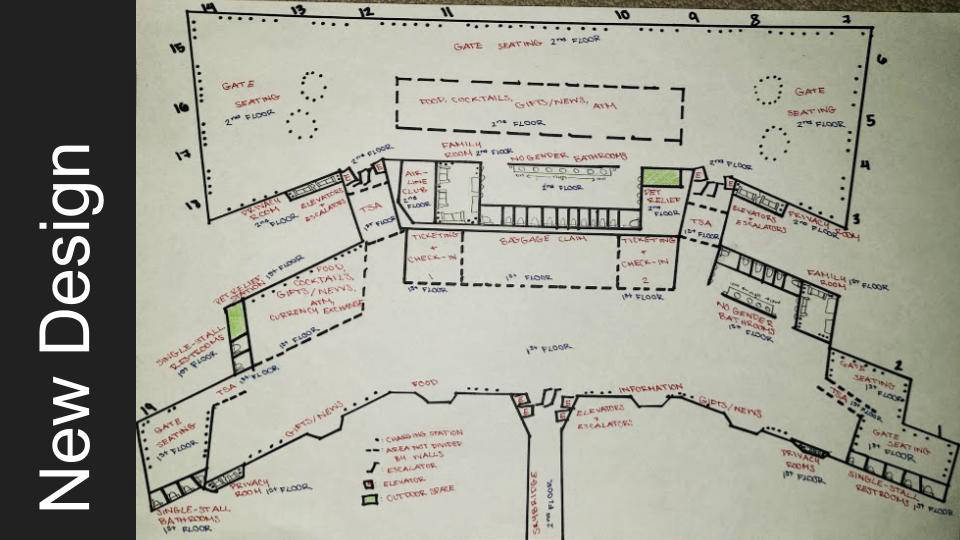 New Design
14
13
12
11
10
9
8
7
15
16
17
13
6
5
4
3
GATE SEATING 2nd FLOOR
GATE
SEATING
2nd FLOOR
FOOD, COCKTAILS, GIFTS/NEWS, ATM
2nd FLOOR
GATE
SEATING
2nd FLOOR
2nd FLOOR
FAMILY
ROOM 2nd FLOOR
NO GENDER BATHROOMS
2nd FLOOR
2nd FLOOR
PRIVACY
ROOM
2nd FLOOR
ELEVATORS
+
ESCALATORS
E
E
TSA
1st FLOOR
AIR-
LINE
CLUB
2nd
FLOOR
PET
RELIEF
2nd
FLOOR
E
E
TSA
1st FLOOR
ELEVATORS
+
ESCALATORS
PRIVACY
ROOM
2nd FLOOR
TICKETING
+
CHECK-IN
1
1st FLOOR
BAGGAGE CLAIM
1st FLOOR
TICKETING
+
CHECK-IN
2
1st FLOOR
PET RELIEF
STATION
1st FLOOR
FOOD,
COCKTAILS,
GIFTS/NEWS,
ATM,
CURRENCY EXCHANGE
1st FLOOR
FAMILY
ROOM
1st FLOOR
NO GENDER
BATHROOMS
1st FLOOR
SINGLE-STALL
RESTROOMS
1st FLOOR
1st FLOOR
TSA
1st FLOOR
19
GATE
SEATING
1st FLOOR
GIFTS/NEWS
FOOD
INFORMATION
GIFTS/NEWS
E
E
E
E
ELEVATORS
+
ESCALATORS
GATE
SEATING
1st FLOOR
2
TSA
1st FLOOR
GATE
SEATING
1st FLOOR
1
PRIVACY
ROOM
1st FLOOR
SINGLE-STALL
BATHROOMS
1st FLOOR
: CHARGING STATION
: AREA NOT DIVIDED
BY WALLS
: ESCALATOR
E : ELEVATOR
: OUTDOOR SPACE
SKYBRIDGE
2nd FLOOR
PRIVACY
ROOMS
1st FLOOR
SINGLE-STALL
RESTROOMS
1st FLOOR